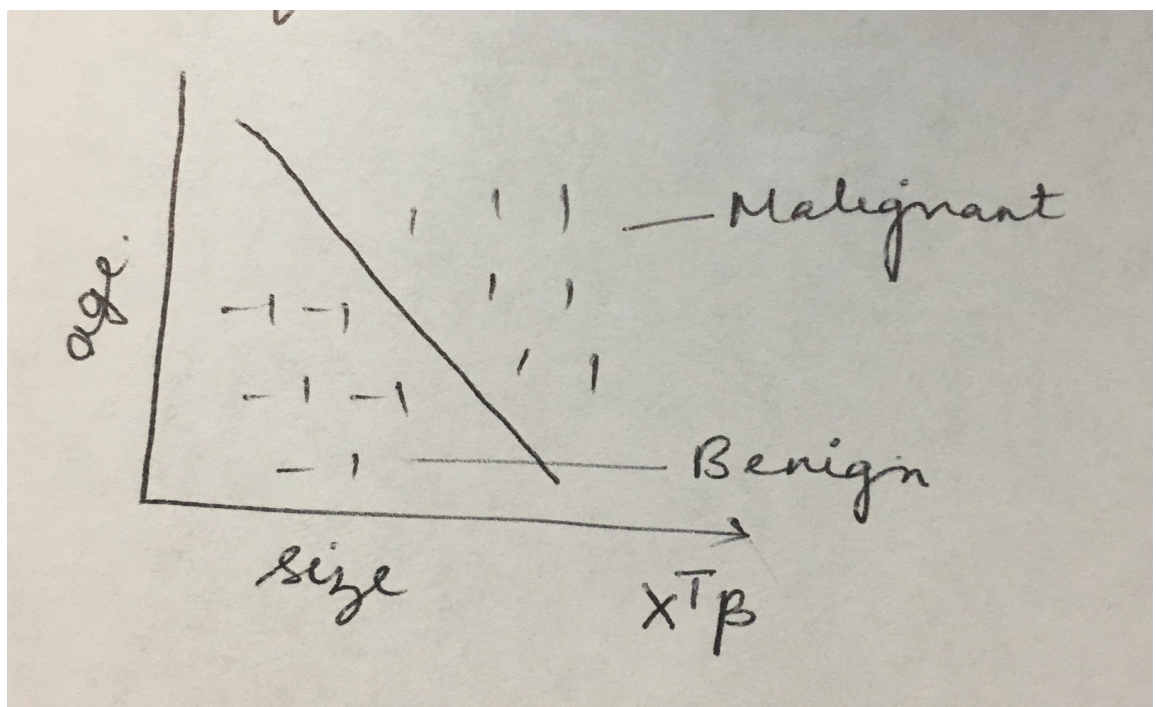 1 1 1
Malignant
age.
1 1
-1 -1
1 1
-1 -1
-1
Benign
size
xᵀβ